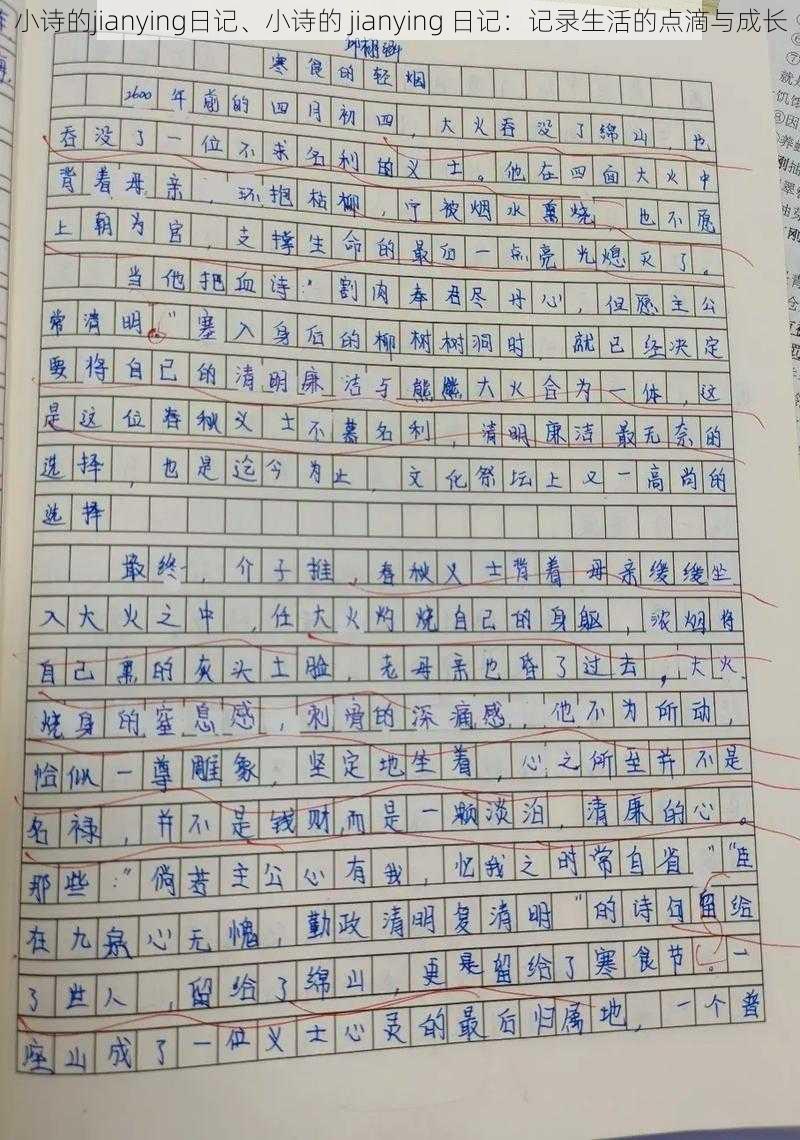 小诗的jianying日记、小诗的 jianying 日记：记录生活的点滴与成长
寒食的轻烟
2600年前的四月初四，大火吞没了绵山，也
吞没了一位不求名利的义士。他在四面大火中
背着母亲，环抱枯柳，宁被烟火熏烧，也不愿
上朝为官，支撑生命的最后一点亮光熄灭了。
当他把血诗："割肉奉君尽丹心，但愿主公
常清明。"塞入身后的柳树树洞时，就已经决定
要将自己的清明廉洁与熊燃大火合为一体，这
是这位春秋义士不慕名利，清明廉洁最无奈的
选择，也是迄今为止，文化祭坛上又一高尚的
选择
最终，介子推，春秋义士背着母亲缓缓坐
入大火之中，任大火灼烧自己的身躯，浓烟将
自己熏的灰头土脸，老母亲也昏了过去，大火
烧身的窒息感，刺骨的深痛感，他不为所动，
恰似一尊雕象，坚定地坐着，心之所至并不是
名禄，并不是钱财，而是一颗淡泊，清廉的心。
那些："倘若主公心有我，忆我之时常自省""臣
在九泉心无愧，勤政清明复清明"的诗句留给
了世人，留给了绵山，更是留给了寒食节。一
座山成了一位义士心灵的最后归属地，一个普
就
饥饿
⑧因
养
刚抽
翠
刚